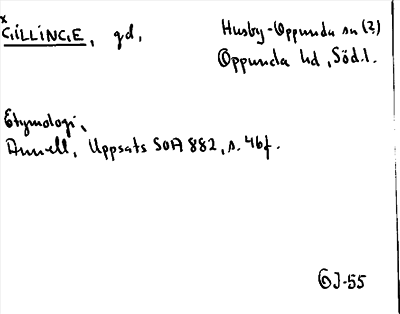 x
GILLINGE, gd, Husby-Oppunda sn (?)
Oppunda hd, Södl.
Etymologi,
Annell, Uppsats SOA 882, s. 46f.
GJ-55